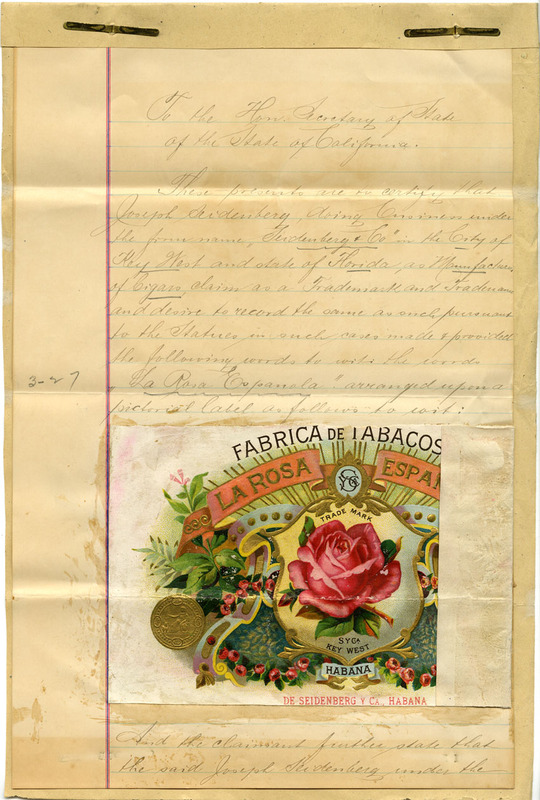 To the Hon. Secretary of State
of the State of California.
These presents are to certify that
Joseph Seidenberg, doing business under
the firm name, "Seidenberg & Co" in the City of
Key West and state of Florida, as Manufacturer
of Cigars, claim as a Trademark and Tradename
and desire to record the same as such, pursuant
to the Statutes in such cases made & provided
the following words to wit: the words
3-27
"La Rosa Española" arranged upon a
pictorial label as follows to wit:
FABRICA DE TABACOS
LA ROSA ESPAÑ
TRADE MARK
S Y Ca
KEY WEST
HABANA
DE SEIDENBERG Y CA., HABANA
And the claimant further state that
the said Joseph Seidenberg under the